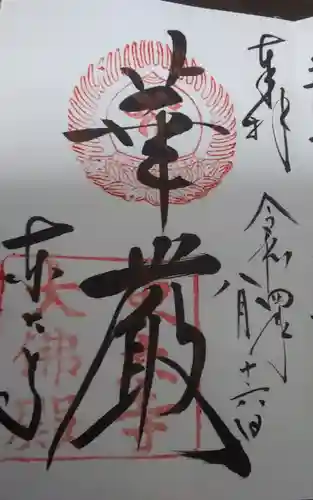 奉拝
令和四年
八月十六日
華厳
東大寺